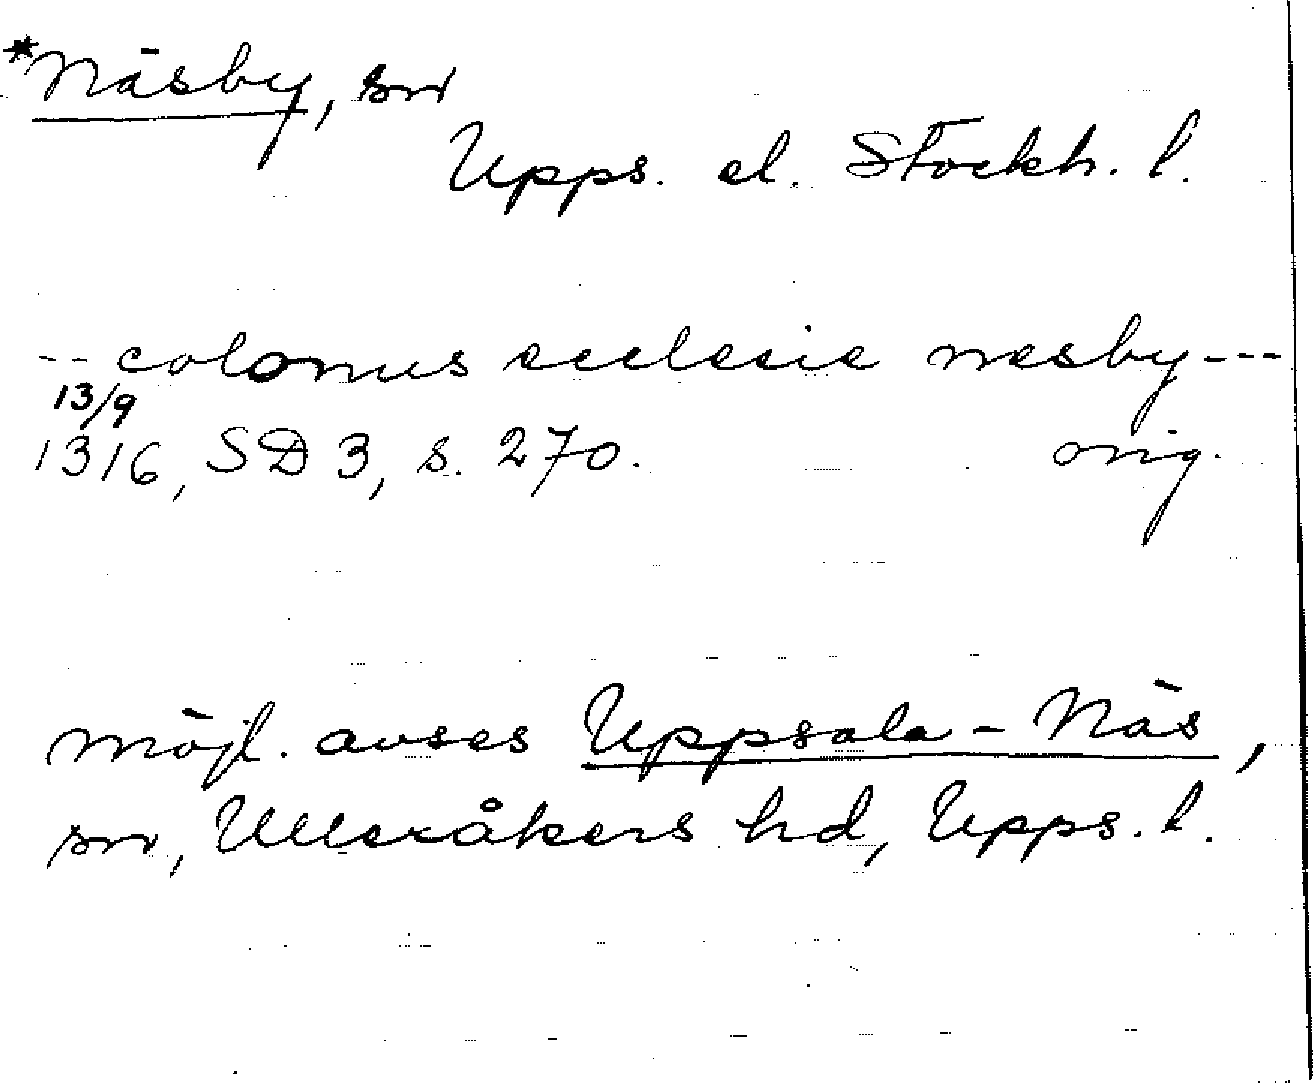 *Näsby, sn
Upps. el. Stockh. l.
-- colonus ecclesie nesby ---
13/9
1316, SD 3, s. 270. orig.
möjl. avses Uppsala-Näs,
sn, Ulleråkers hd, Upps. l.